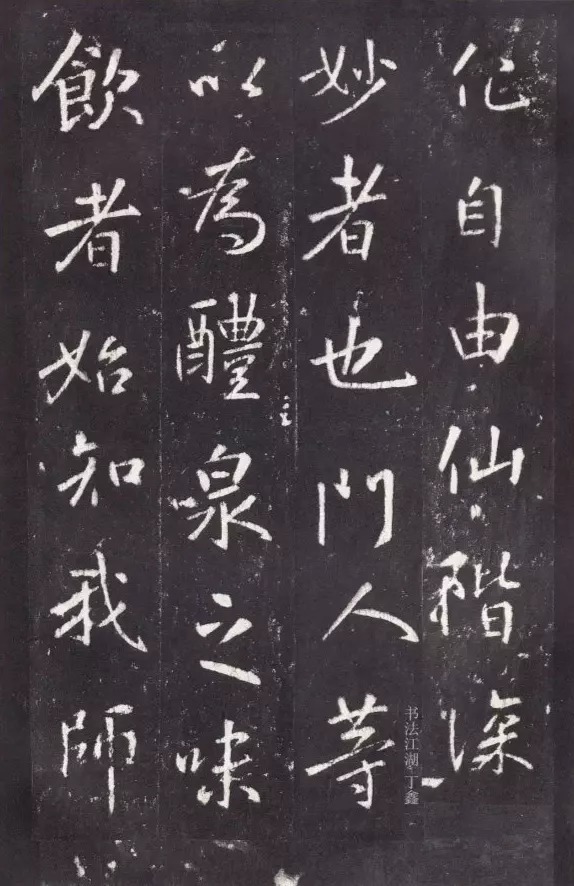 化自由仙階深
妙者也門人等
以為醴泉之味
飲者始知我師
书法江湖 丁鑫